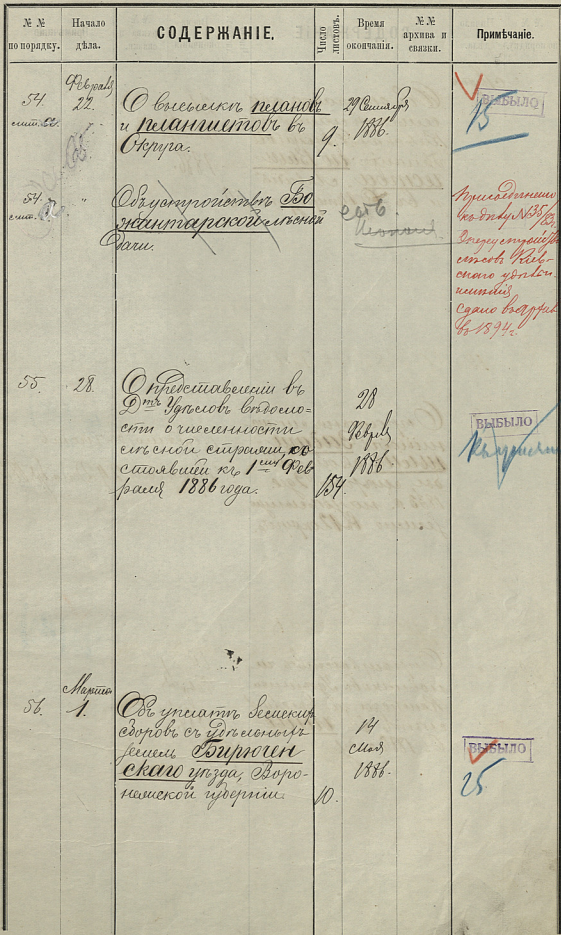 № № по порядку.
Начало дѣла.
СОДЕРЖАНІЕ.
Число листовъ.
Время окончанія.
№№ архива и связки.
Примѣчаніе.
Февраля
54.
22.
О высылкѣ плановъ
и планшетовъ въ
Округа.
9.
29 Сентября
1886.
ВЫБЫЛО
15
54.
"
Объ устройствѣ Бо
жантарской лѣсной
дачи.
есть
Присоединено
къ дѣлу №35/
лѣсовъ Кіев-
скаго удѣльн
имѣнія
сдано въ архив
въ 1894 г.
55.
28.
О представленіи въ
Дтъ Удѣловъ вѣдомо-
сти о численности
лѣсной стражи, со
стоявшей къ 1ому Фев
раля 1886 года.
154.
28
Феврал
1886.
ВЫБЫЛО
Марта
56.
1.
Объ уплатѣ земскихъ
сборовъ съ удѣльныхъ
земель Бирючен
скаго уѣзда, Воро-
нежской губерніи
10.
14
мая
1886.
ВЫБЫЛО
25